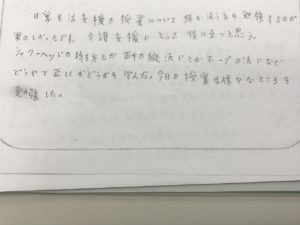 日常生活支援の授業について 頭を洗う方を勉強するのが
楽しかったです。介護支援にとって役に立つと思う。
シャワーヘッドの持ち方とか 両手の縦洗いとかネープの洗いなど
どうやって正しいかどうかを学んだ。今日の授業は様々なところを
勉強した。